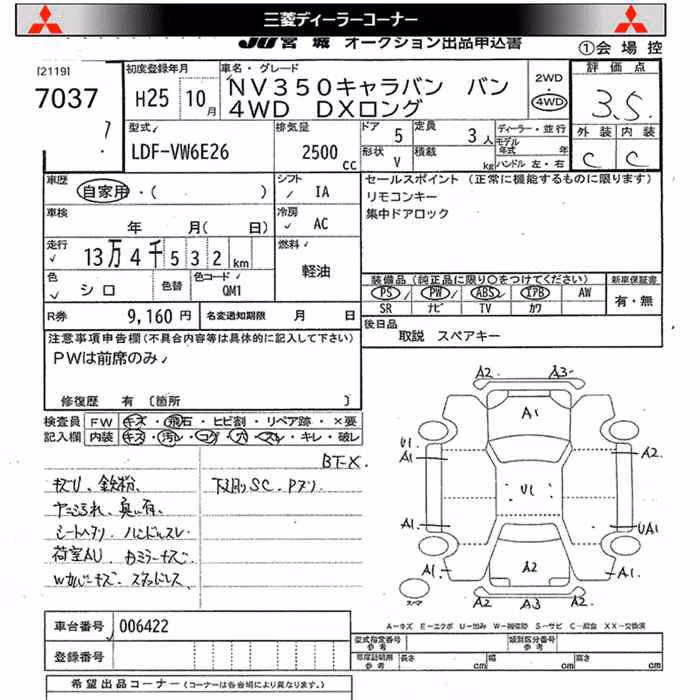 三菱ディーラーコーナー
JU宮城 オークション出品申込書
①会場控
[2119]
7037
初度登録年月
H25 10月
車名・グレード
NV350キャラバン バン
4WD DXロング
2WD
4WD
評価点
3.5
外装 内装
C C
型式
LDF-VW6E26
排気量
2500 cc
ドア 5
定員 3人
形状 V
積載 kg
ディーラー・並行
モデル年式 年
ハンドル 左・右
車歴
自家用・( )
シフト
IA
セールスポイント (正常に機能するものに限ります)
リモコンキー
集中ドアロック
車検
年 月( 日)
冷房
AC
走行
13万4千532km
燃料
軽油
色
シロ
色替
色コード
QM1
装備品(純正品に限り○をつけてください)
新車保証書
PS PW ABS エアB AW
SR ナビ TV カワ
有・無
R券 9,160円
名変通知期限 月 日
後日品
取説 スペアキー
注意事項申告欄(不具合内容等は具体的に記入して下さい)
PWは前席のみ
修復歴 有 〔箇所 〕
検査員
記入欄
FW キズ・飛石・ヒビ割・リペア跡・×要
内装 キズ・汚レ・コゲ・穴・スレ・キレ・破レ
BT-X
キズU、鉄粉、
下廻りSC、Pブソ
シートヘタリ、ハンドルスレ
荷室AU
A2 A3
A1
U1
A1
A2
U1
A1
UA1
A1
A2
A1
A2 A3 A2
スペア
A-キズ E-エクボ U-凹み W-補修跡 S-サビ C-腐食 XX-交換済
車台番号 006422
登録番号
型式指定番号 参考
類別区分番号 参考
車庫証明用 参考 長さ cm 幅 cm 高さ cm
希望出品コーナー (コーナーは各会場により異なります。)